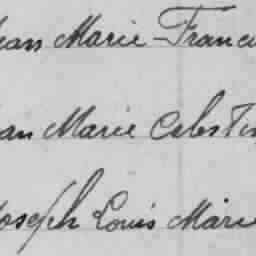 ean Marie Franci
an Marie Celestin
Joseph Louis Marie